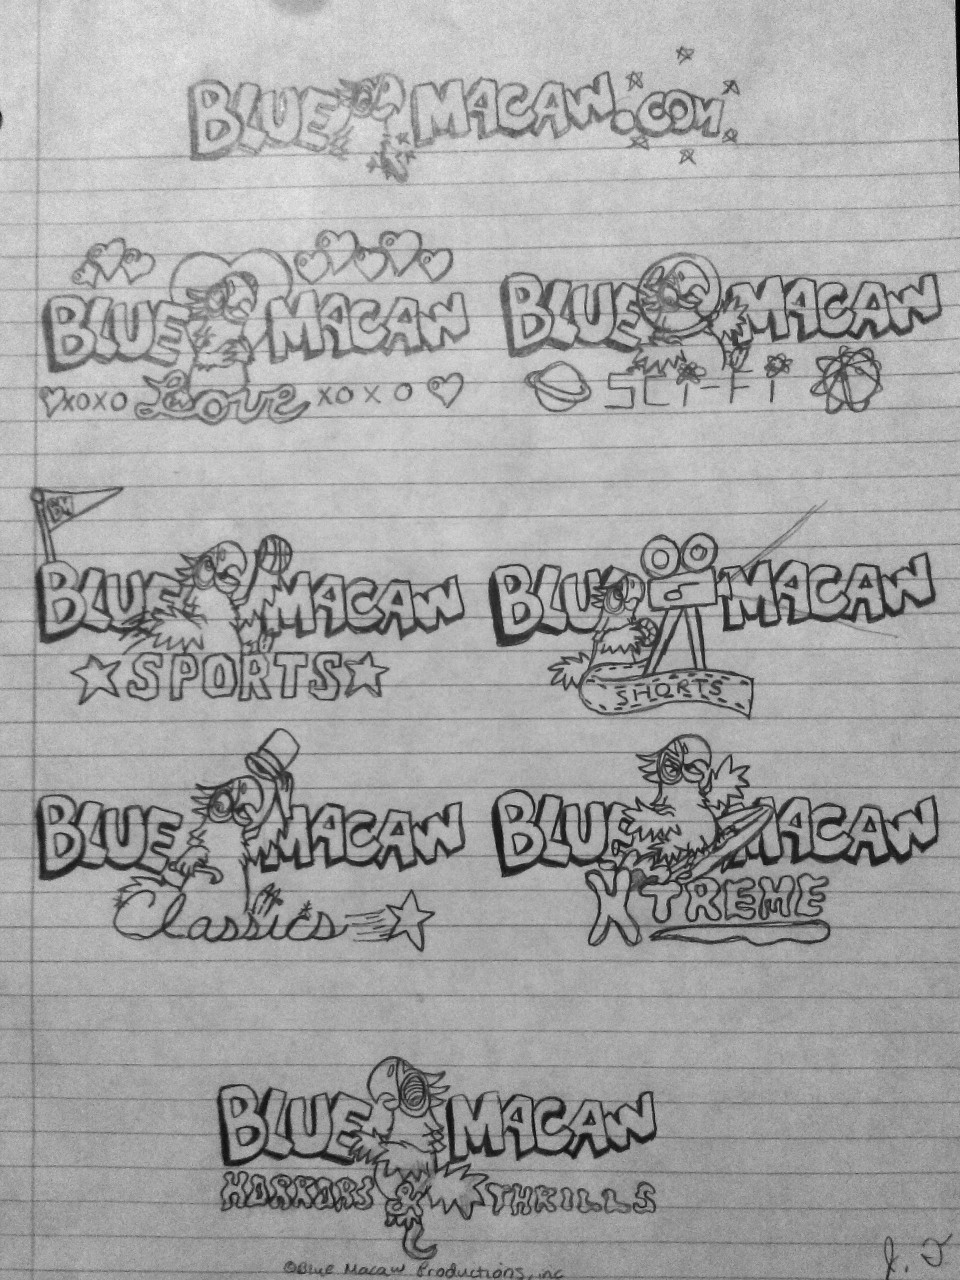 BLUE MACAW.COM
BLUE MACAW
XOXO Love XO X O
BLUE MACAW
SCI-FI
BW
BLUE MACAW
SPORTS
BLUE MACAW
SHORTS
BLUE MACAW
Classics
BLUE MACAW
XTREME
BLUE MACAW
HORRORS & THRILLS
©Blue Macaw Productions, inc
J. J